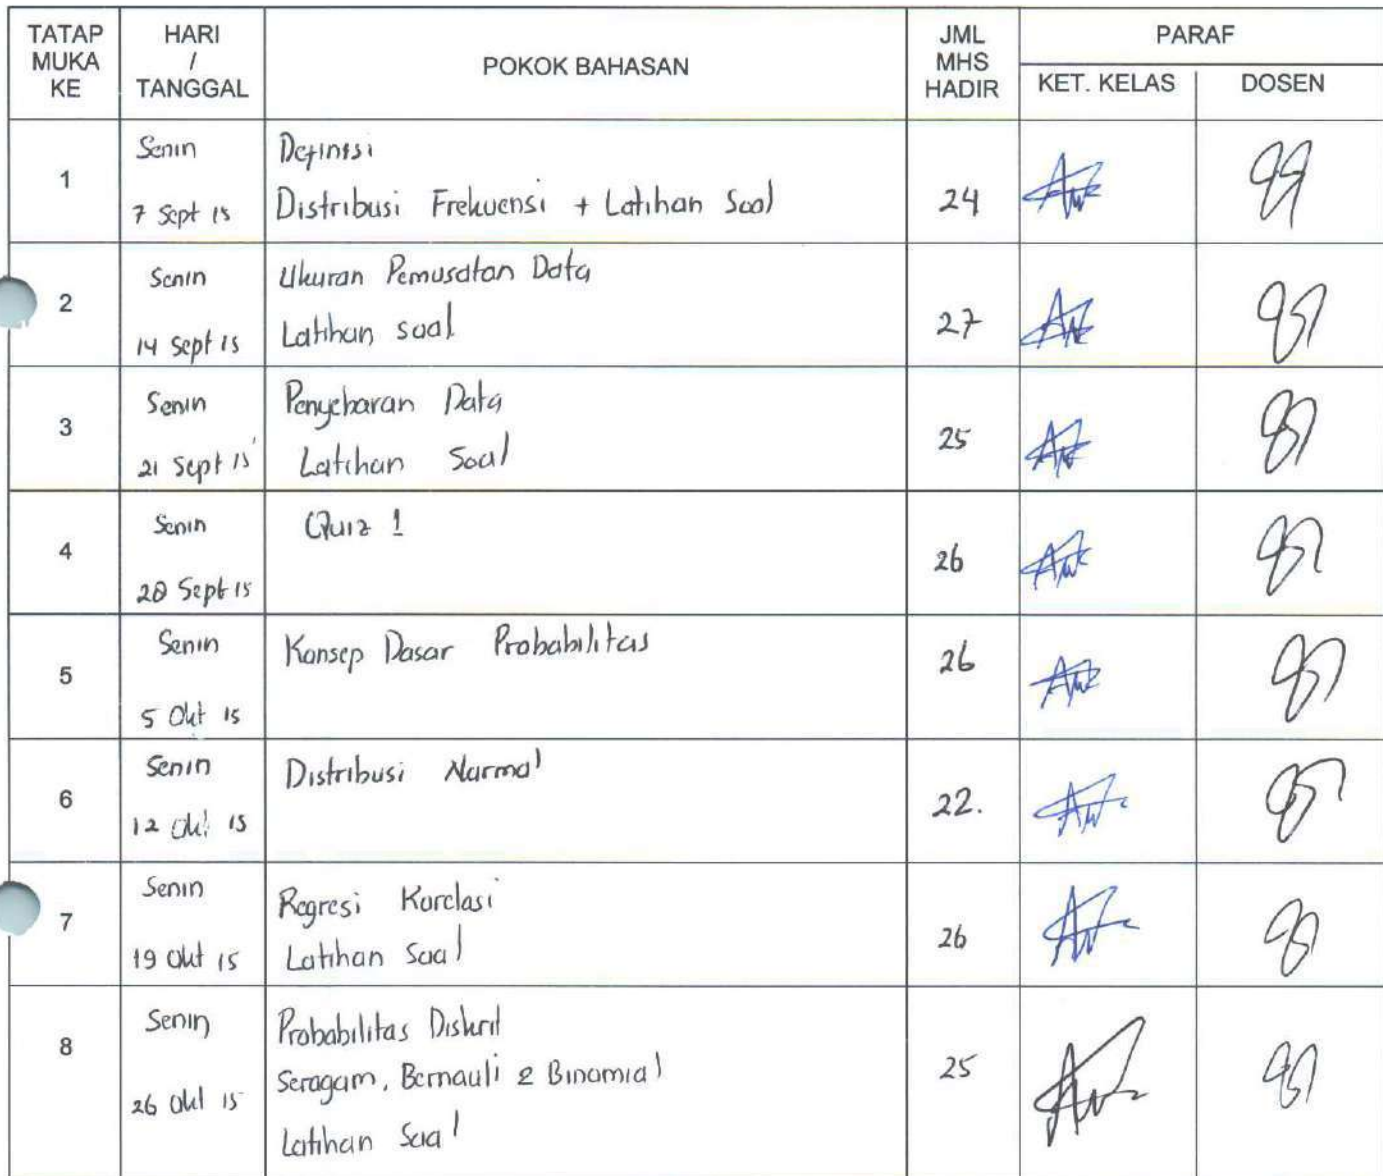 TATAP MUKA KE
HARI / TANGGAL
POKOK BAHASAN
JML MHS HADIR
PARAF
KET. KELAS
DOSEN
1
Senin
7 Sept 15
Definisi
Distribusi Frekuensi + Latihan Soal
24
2
Senin
14 Sept 15
Ukuran Pemusatan Data
Latihan soal
27
3
Senin
21 Sept 15
Penyebaran Data
Latihan Soal
25
4
Senin
28 Sept 15
Quiz 1
26
5
Senin
5 Okt 15
Konsep Dasar Probabilitas
26
6
Senin
12 Okt 15
Distribusi Normal
22.
7
Senin
19 Okt 15
Regresi Korelasi
Latihan Soal
26
8
Senin
26 Okt 15
Probabilitas Diskrit
Seragam, Bernauli & Binomial
Latihan Soal
25